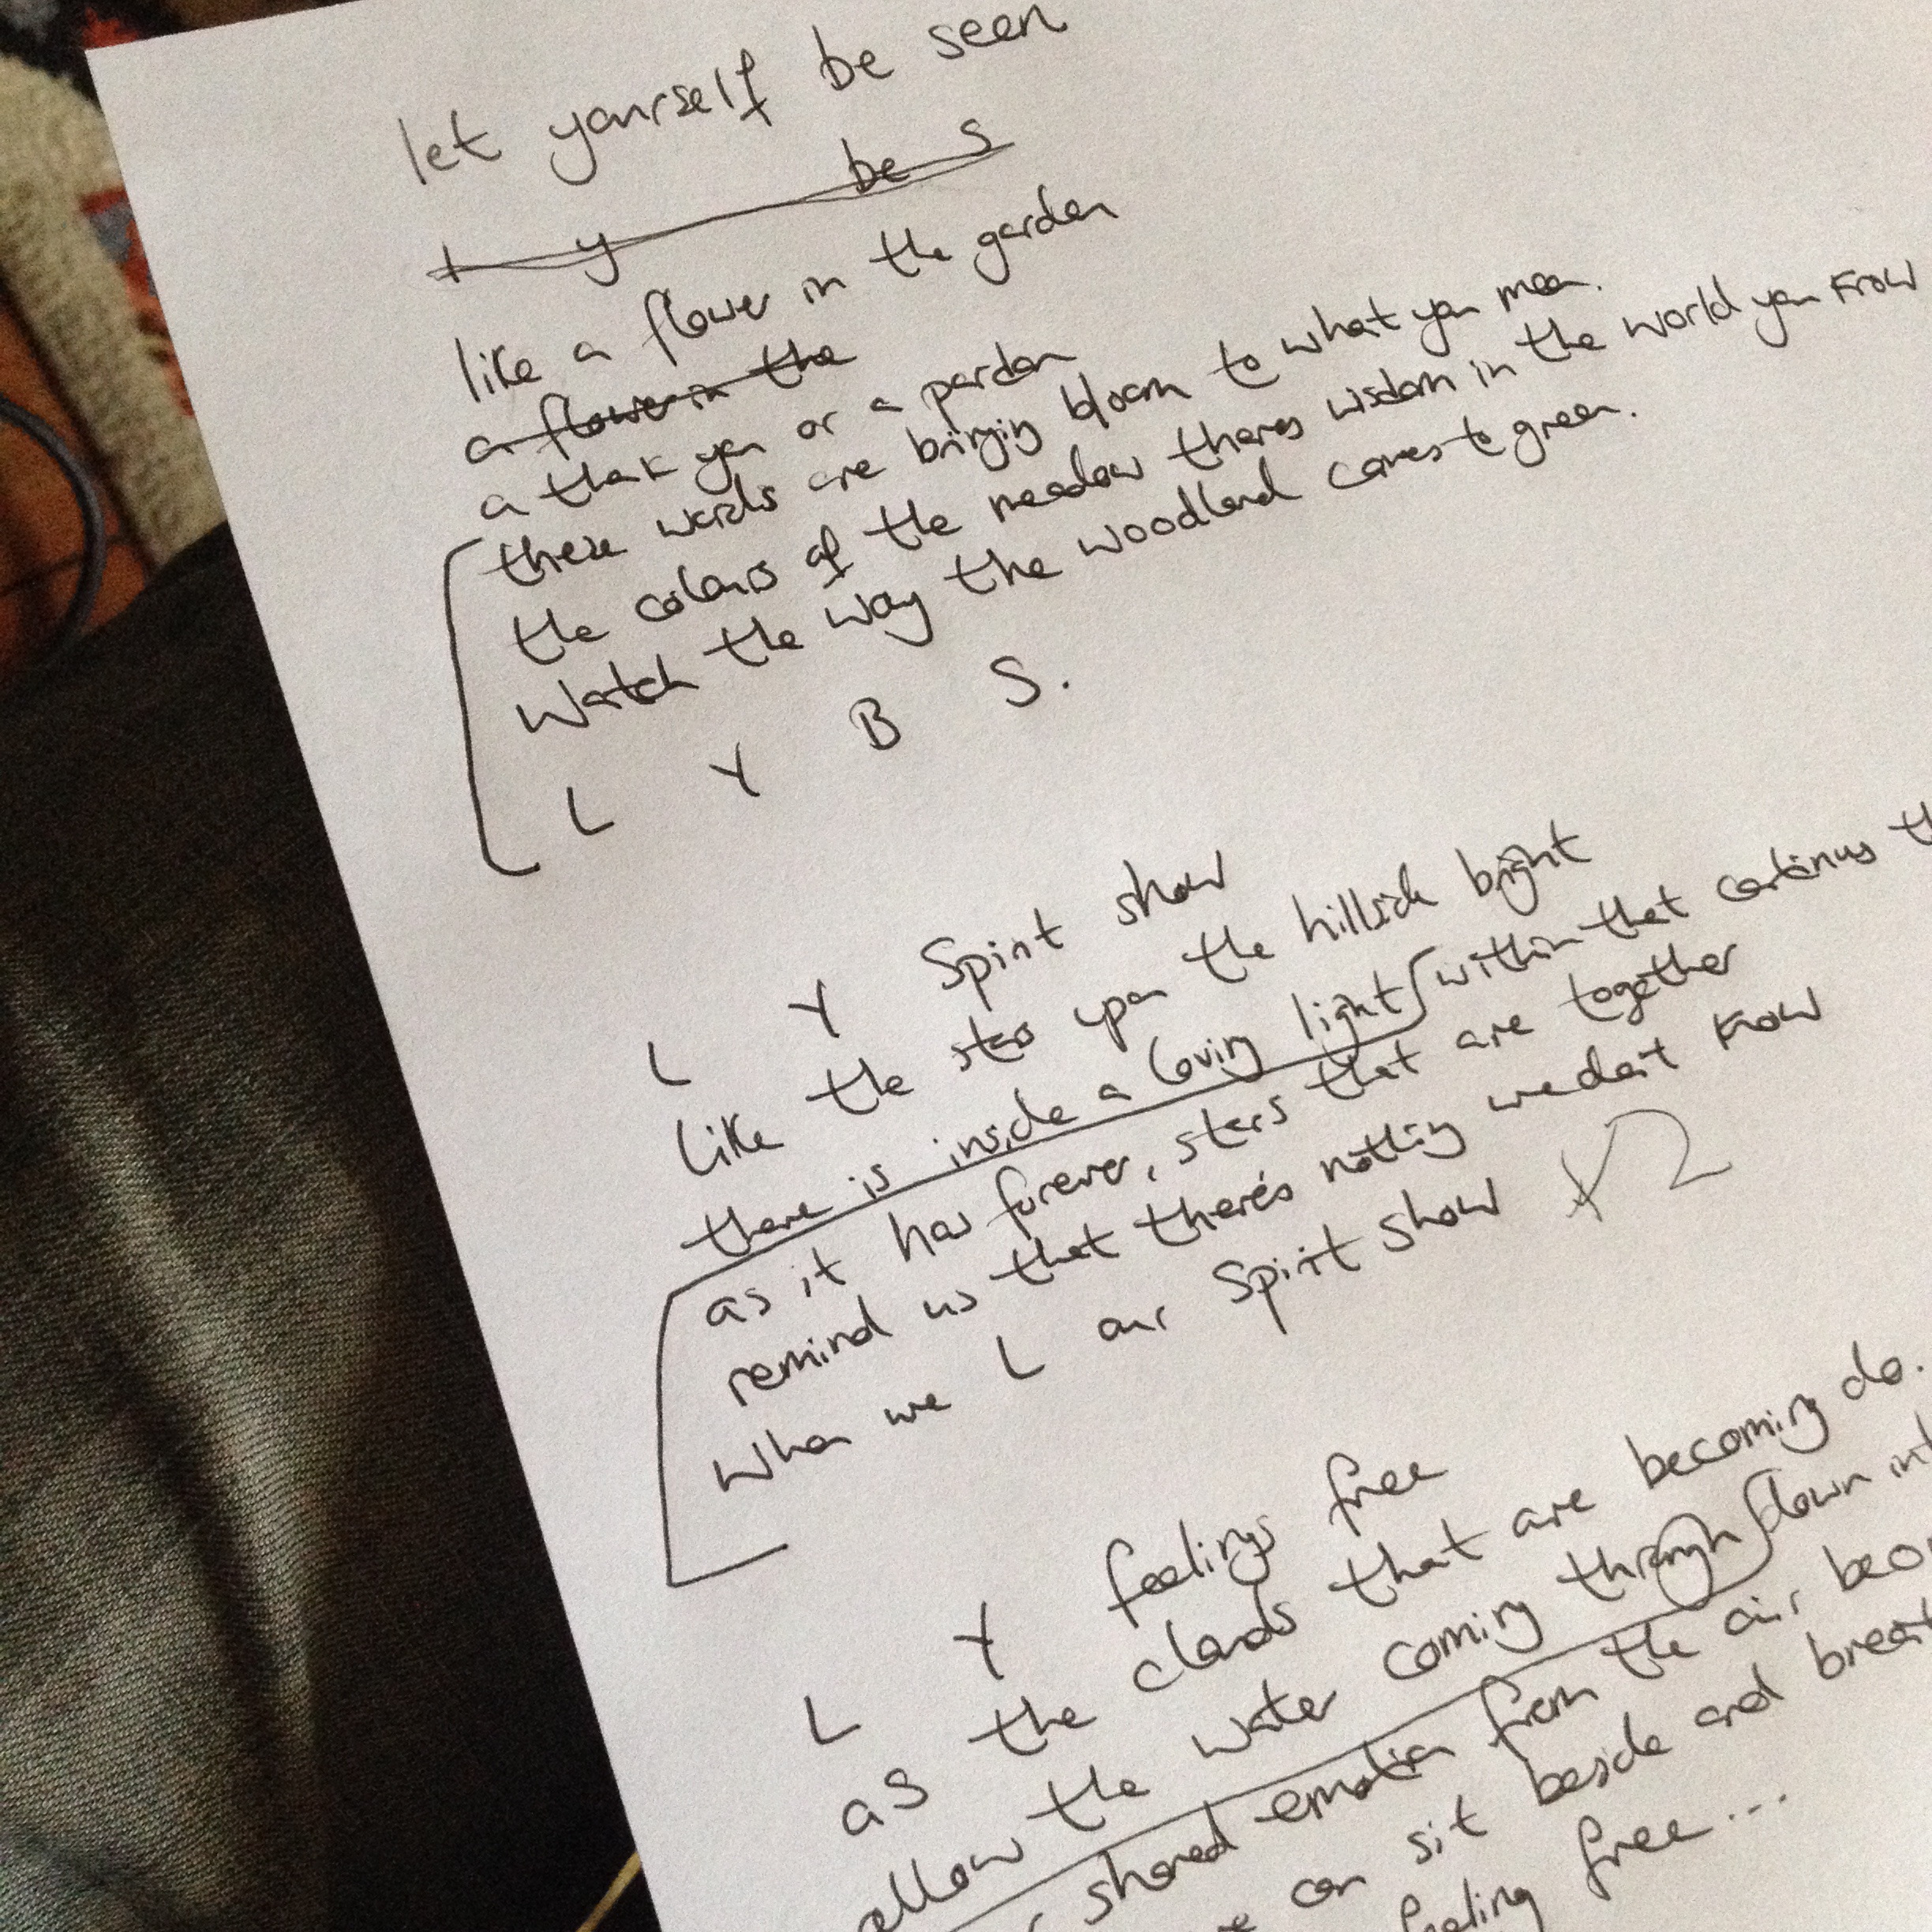 let yourself be seen
l y be s
like a flower in the garden
a flower in the
a thank you or a pardon
these words are bringing bloom to what you mean.
the colours of the meadow theres wisdom in the world you know
Watch the way the woodland comes to green.
L Y B S.
L Y Spirit show
Like the stars upon the hillside bright
there is inside a loving light within that continues
as it has forever, stars that are together
remind us that there's nothing we don't know
When we L our Spirit show x2
L Y feelings free
as the clouds that are becoming do.
allow the water coming through down
shared emotion from the air,
can sit beside and
feeling free...